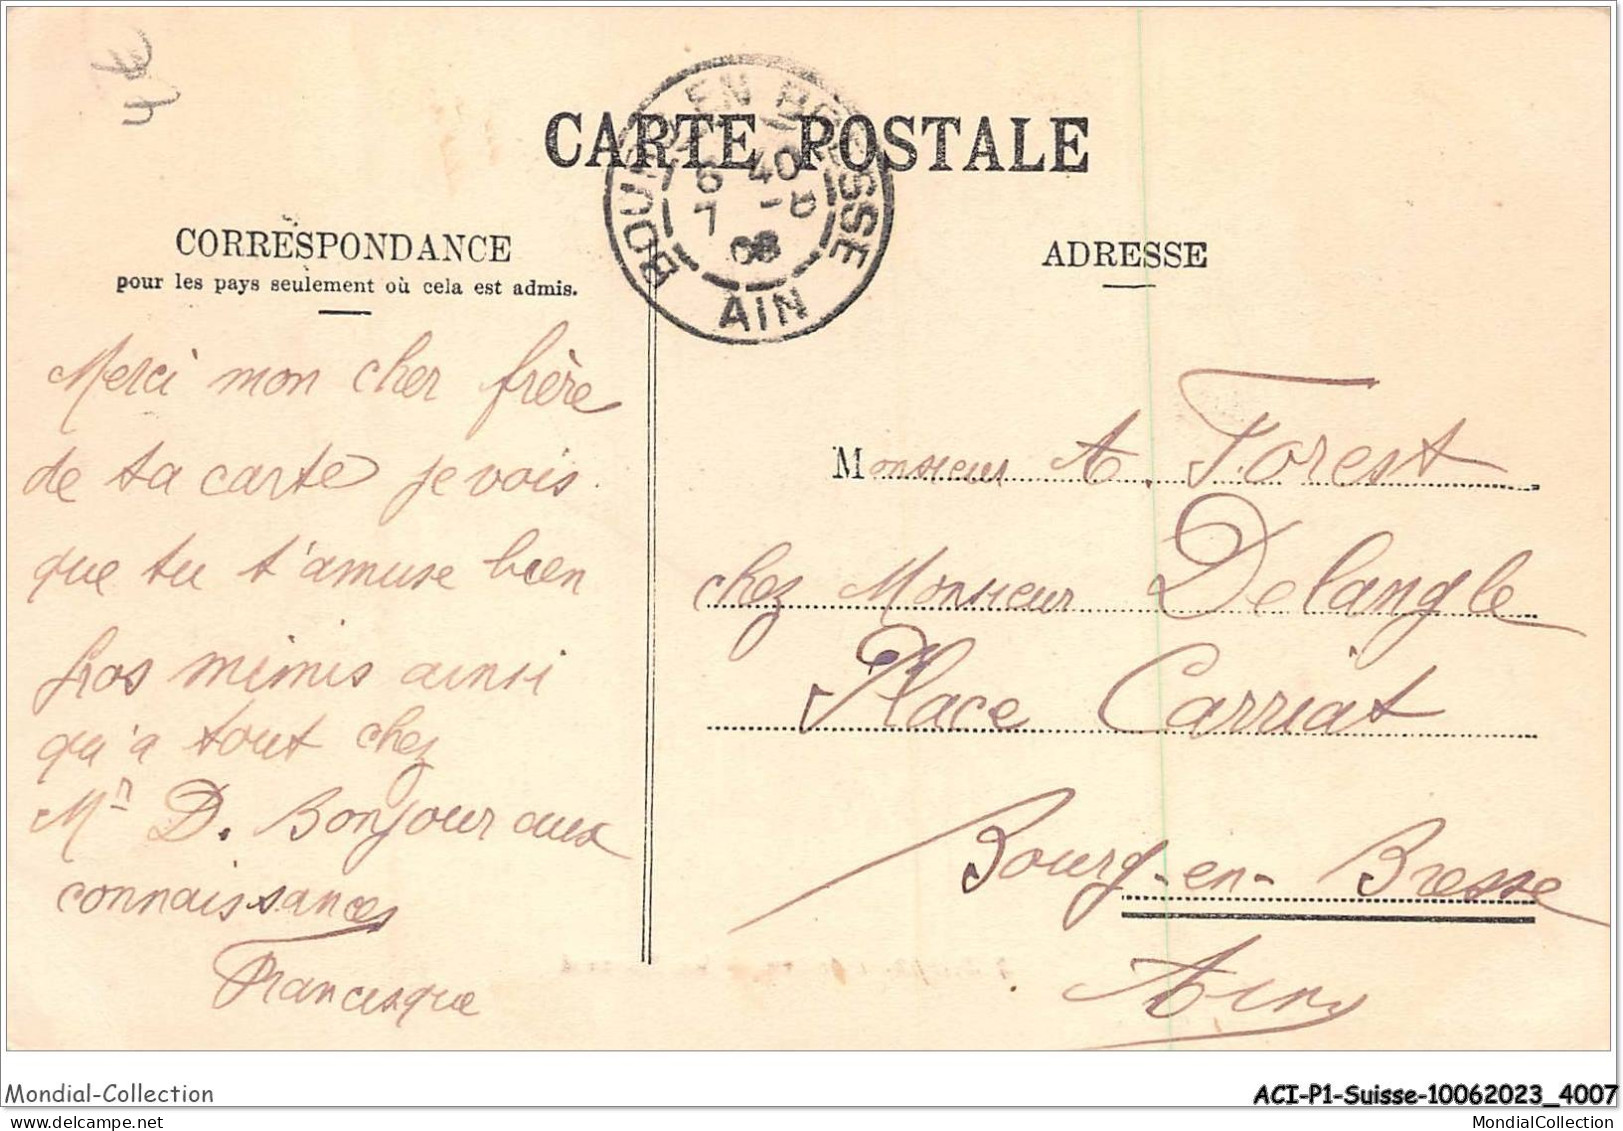 4E
CARTE POSTALE
BOURG-EN-BRESSE
6 40
7 -8
08
AIN
CORRESPONDANCE
pour les pays seulement où cela est admis.
ADRESSE
Merci mon cher frère
de ta carte je vois
que tu t'amuse bien
Gros mimis ainsi
qu'a tout chez
Mr D. Bonjour aux
connaissances
Francisque
Monsieur A. Forest
chez Monsieur Delangle
Place Carriat
Bourg-en-Bresse
Ain
Mondial-Collection
ACI-P1-Suisse-10062023_4007
MondialCollection
MondialCollection